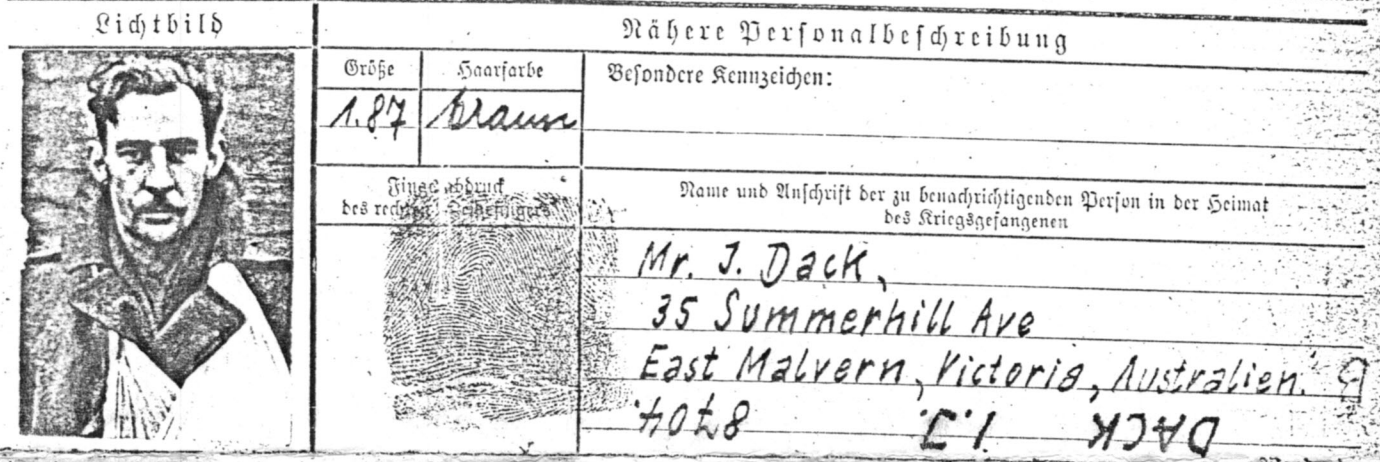 Lichtbild
Nähere Personalbeschreibung
Größe Haarfarbe Besondere Kennzeichen:
1.87 braun
Fingerabdruck
des rechten Zeigefingers
Name und Anschrift der zu benachrichtigenden Person in der Heimat
des Kriegsgefangenen
Mr. J. Dack,
35 Summerhill Ave
East Malvern, Victoria, Australien.
DACK 8704.